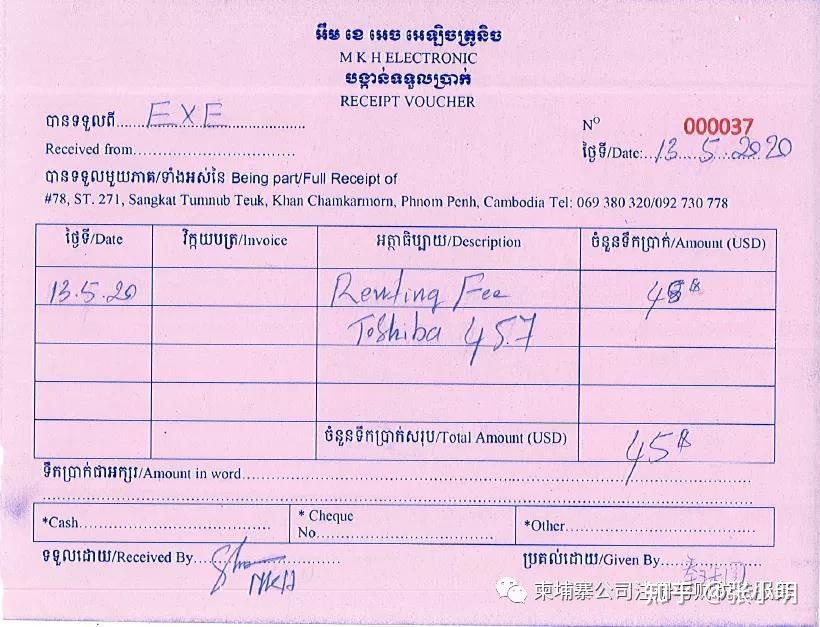 អឹម ខេ អេច អេឡិចត្រូនិច
M K H ELECTRONIC
បង្កាន់ទទួលប្រាក់
RECEIPT VOUCHER
បានទទួលពី EXE
Nº 000037
Received from
ថ្ងៃទី/Date: 13.5.2020
បានទទួលមួយភាគ/ទាំងអស់នៃ Being part/Full Receipt of
#78, ST. 271, Sangkat Tumnub Teuk, Khan Chamkarmorn, Phnom Penh, Cambodia Tel: 069 380 320/092 730 778
ថ្ងៃទី/Date វិក្កយបត្រ/Invoice អត្ថាធិប្បាយ/Description ចំនួនទឹកប្រាក់/Amount (USD)
13.5.20 Renting Fee 45$
Toshiba 457
ចំនួនទឹកប្រាក់សរុប/Total Amount (USD) 45$
ទឹកប្រាក់ជាអក្សរ/Amount in word
*Cash * Cheque *Other
No.
ទទួលដោយ/Received By MKH
ប្រគល់ដោយ/Given By
柬埔寨公司注册
知乎 @张小明